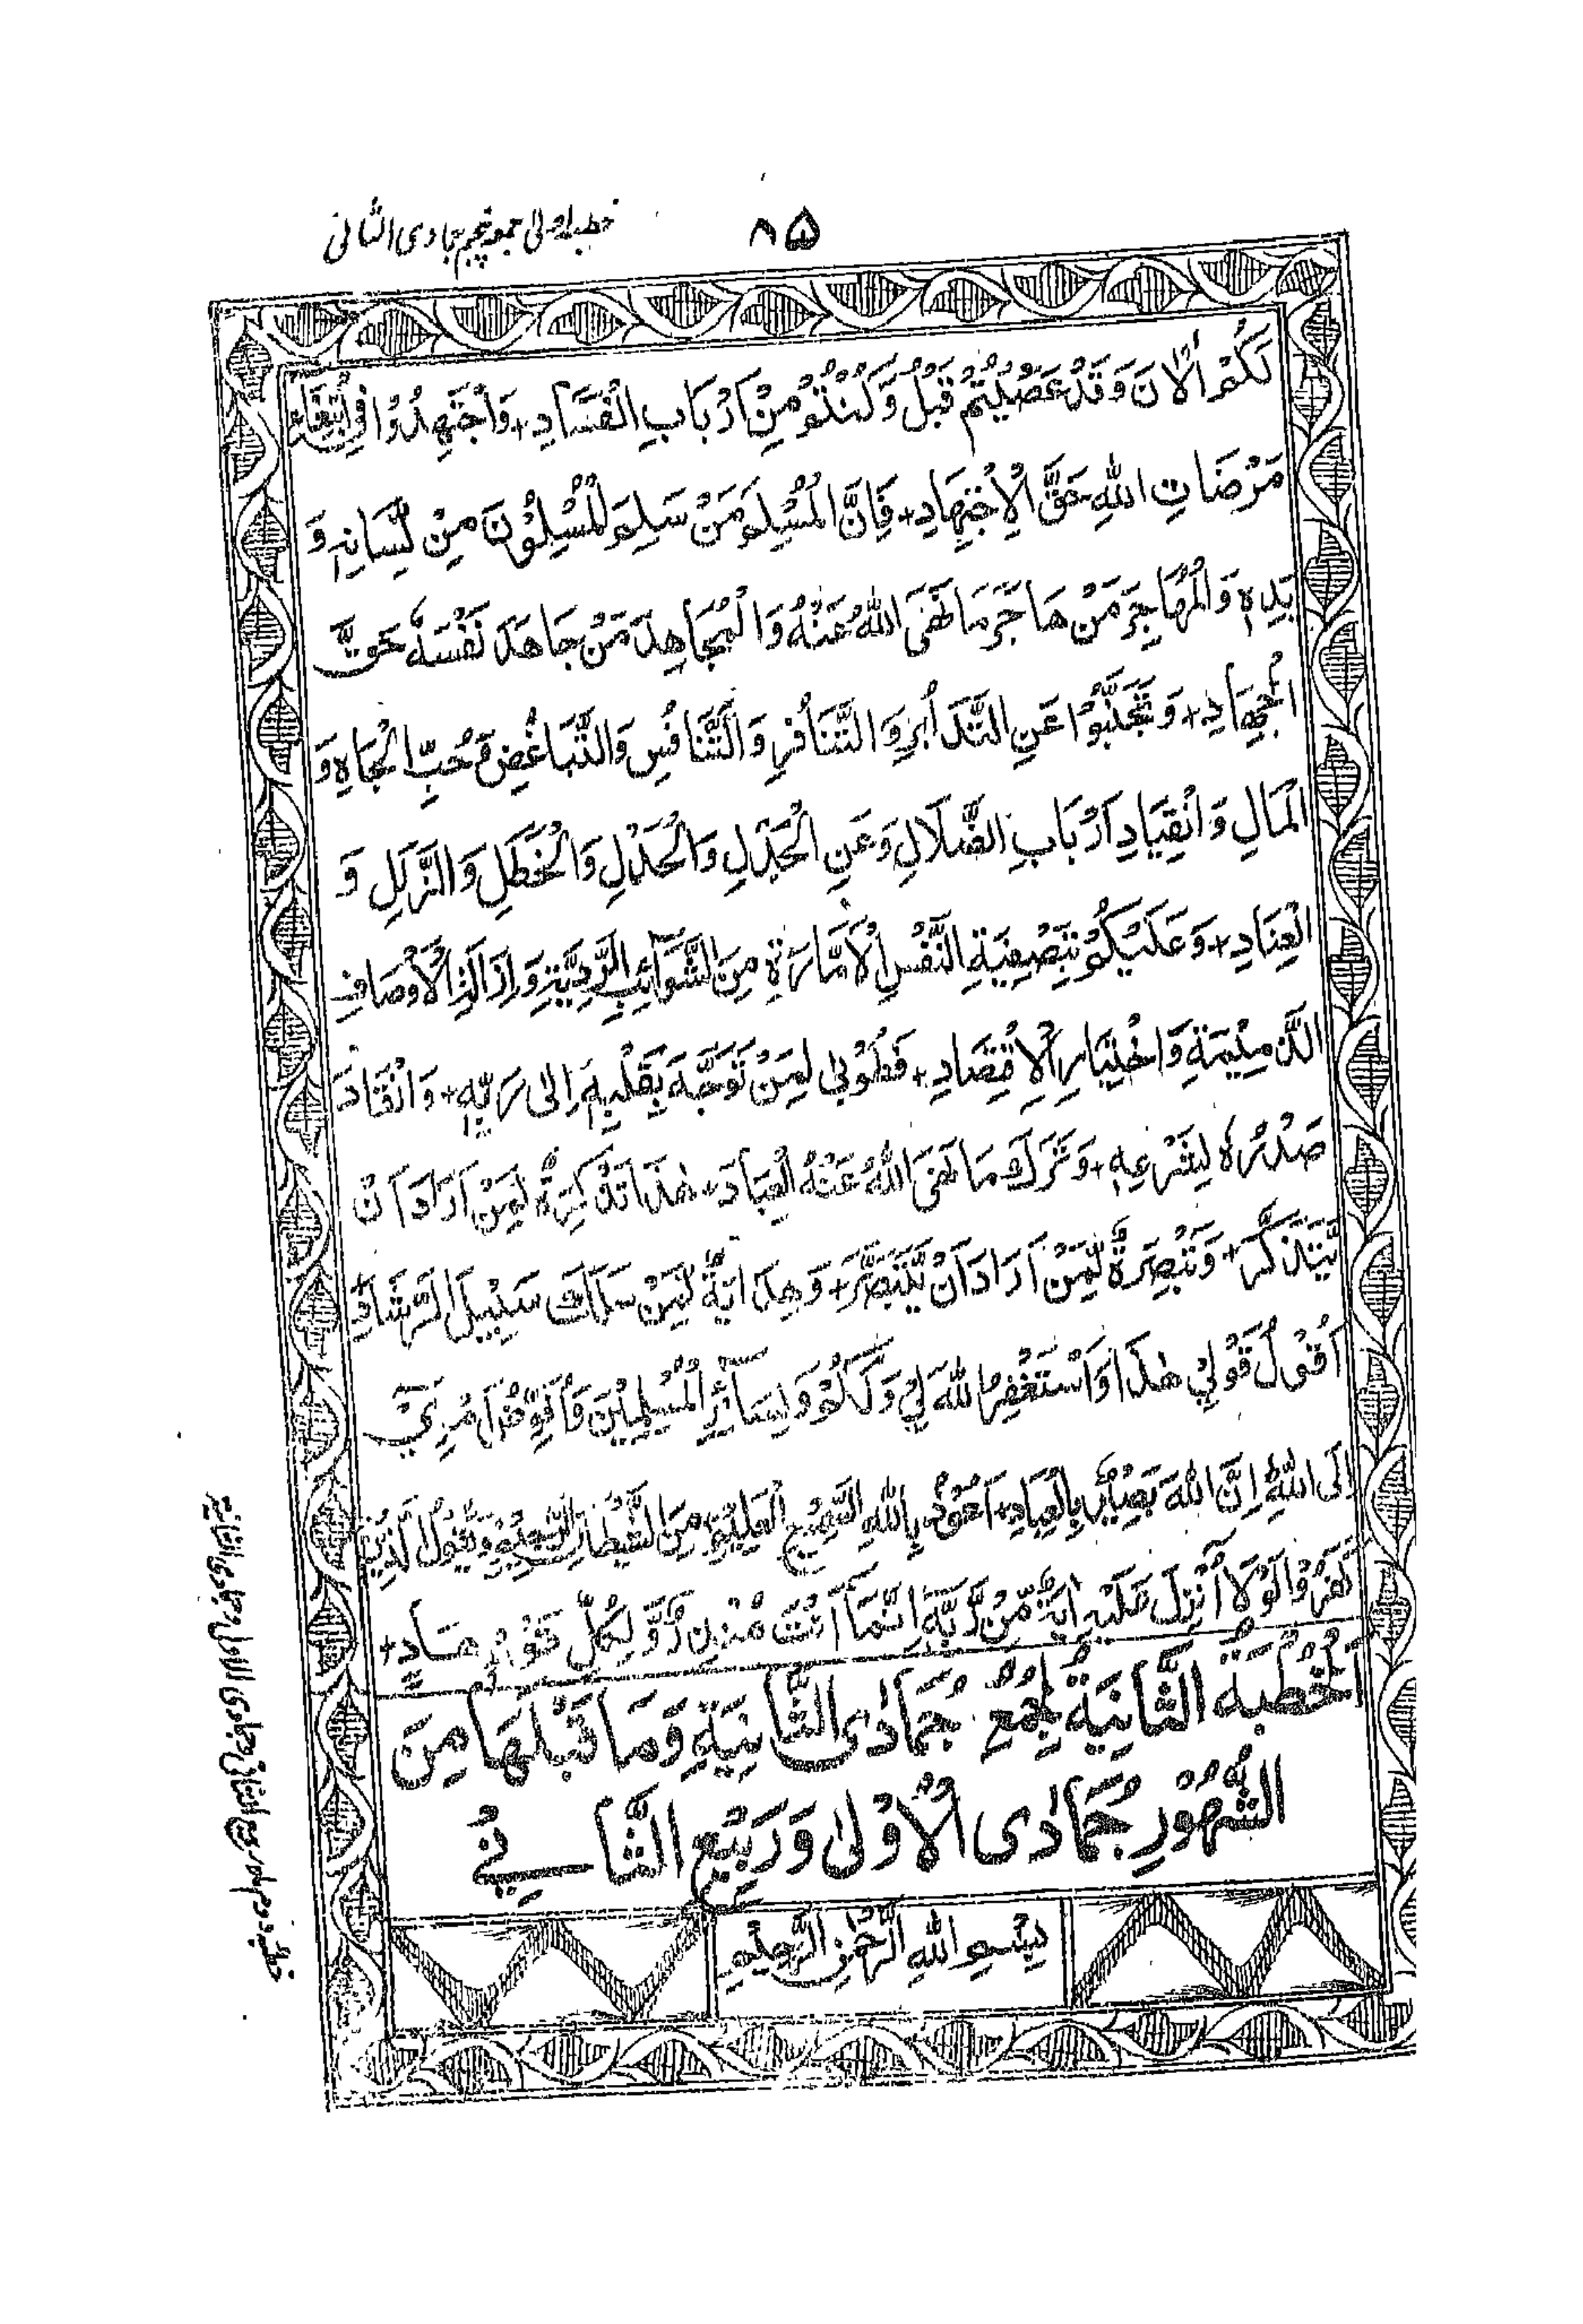 ۸۵
خطبہ اولیٰ جمعہ پنجم جمادی الثانی
لَكُمْ اَلْاٰنَ وَقَدْ عَصَيْتُمْ قَبْلُ وَكُنْتُمْ مِنْ اَرْبَابِ الْفَسَادِ+ وَاجْتَهِدُوْا فِي ابْتِغَاءِ
مَرْضَاتِ اللّٰهِ حَقَّ الْاِجْتِهَادِ+ فَاِنَّ الْمُسْلِمَ مَنْ سَلِمَ الْمُسْلِمُوْنَ مِنْ لِّسَانِهٖ وَ
يَدِهٖ وَالْمُهَاجِرَ مَنْ هَاجَرَ مَا نَهَى اللّٰهُ عَنْهُ وَالْمُجَاهِدَ مَنْ جَاهَدَ نَفْسَهٗ حَقَّ
الْجِهَادِ+ وَتَجَنَّبُوْا عَنِ التَّدَابُرِ وَالتَّنَافُرِ وَالتَّنَافُسِ وَالتَّبَاغُضِ وَحُبِّ الْجَاهِ وَ
الْمَالِ وَانْقِيَادِ اَرْبَابِ الضَّلَالِ وَعَنِ الْجَدَلِ وَالْخَطَلِ وَالزَّلَلِ وَ
الْعِنَادِ+ وَعَلَيْكُمْ بِتَصْفِيَةِ النَّفْسِ الْاَمَّارَةِ مِنَ الشَّوَائِبِ الرَّدِيَّةِ وَاِزَالَةِ الْاَوْصَافِ
الذَّمِيْمَةِ وَاخْتِيَارِ الْاِقْتِصَادِ+ فَطُوْبٰى لِمَنْ تَوَجَّهَ بِقَلْبِهٖ اِلٰى رَبِّهٖ+ وَانْقَادَ
صَدْرُهٗ لِشَرْعِهٖ+ وَتَرَكَ مَا نَهَى اللّٰهُ عَنْهُ الْعِبَادَ+ هٰذَا تَذْكِرَةٌ لِّمَنْ اَرَادَ اَنْ
يَّتَذَكَّرَ+ وَتَبْصِرَةٌ لِّمَنْ اَرَادَ اَنْ يَّتَبَصَّرَ+ وَهِدَايَةٌ لِّمَنْ سَلَكَ سَبِيْلَ الرَّشَادِ+
اَقُوْلُ قَوْلِيْ هٰذَا وَاَسْتَغْفِرُ اللّٰهَ لِيْ وَلَكُمْ وَلِسَائِرِ الْمُسْلِمِيْنَ وَاُفَوِّضُ اَمْرِيْ
اِلَى اللّٰهِ اِنَّ اللّٰهَ بَصِيْرٌۢ بِالْعِبَادِ+ اَعُوْذُ بِاللّٰهِ السَّمِيْعِ الْعَلِيْمِ مِنَ الشَّيْطَانِ الرَّجِيْمِ وَيَقُوْلُ الَّذِيْنَ
كَفَرُوْا لَوْلَا اُنْزِلَ عَلَيْهِ اٰيَةٌ مِّنْ رَّبِّهٖ اِنَّمَا اَنْتَ مُنْذِرٌ وَّلِكُلِّ قَوْمٍ هَادٍ+
اَلْخُطْبَةُ الثَّانِيَةُ لِجُمَعِ جُمَادَى الثَّانِيَةِ وَمَا قَبْلَهَا مِنَ
الشُّهُوْرِ جُمَادَى الْاُوْلٰى وَرَبِيْعِ الثَّانِيْ
بِسْمِ اللّٰهِ الرَّحْمٰنِ الرَّحِيْمِ